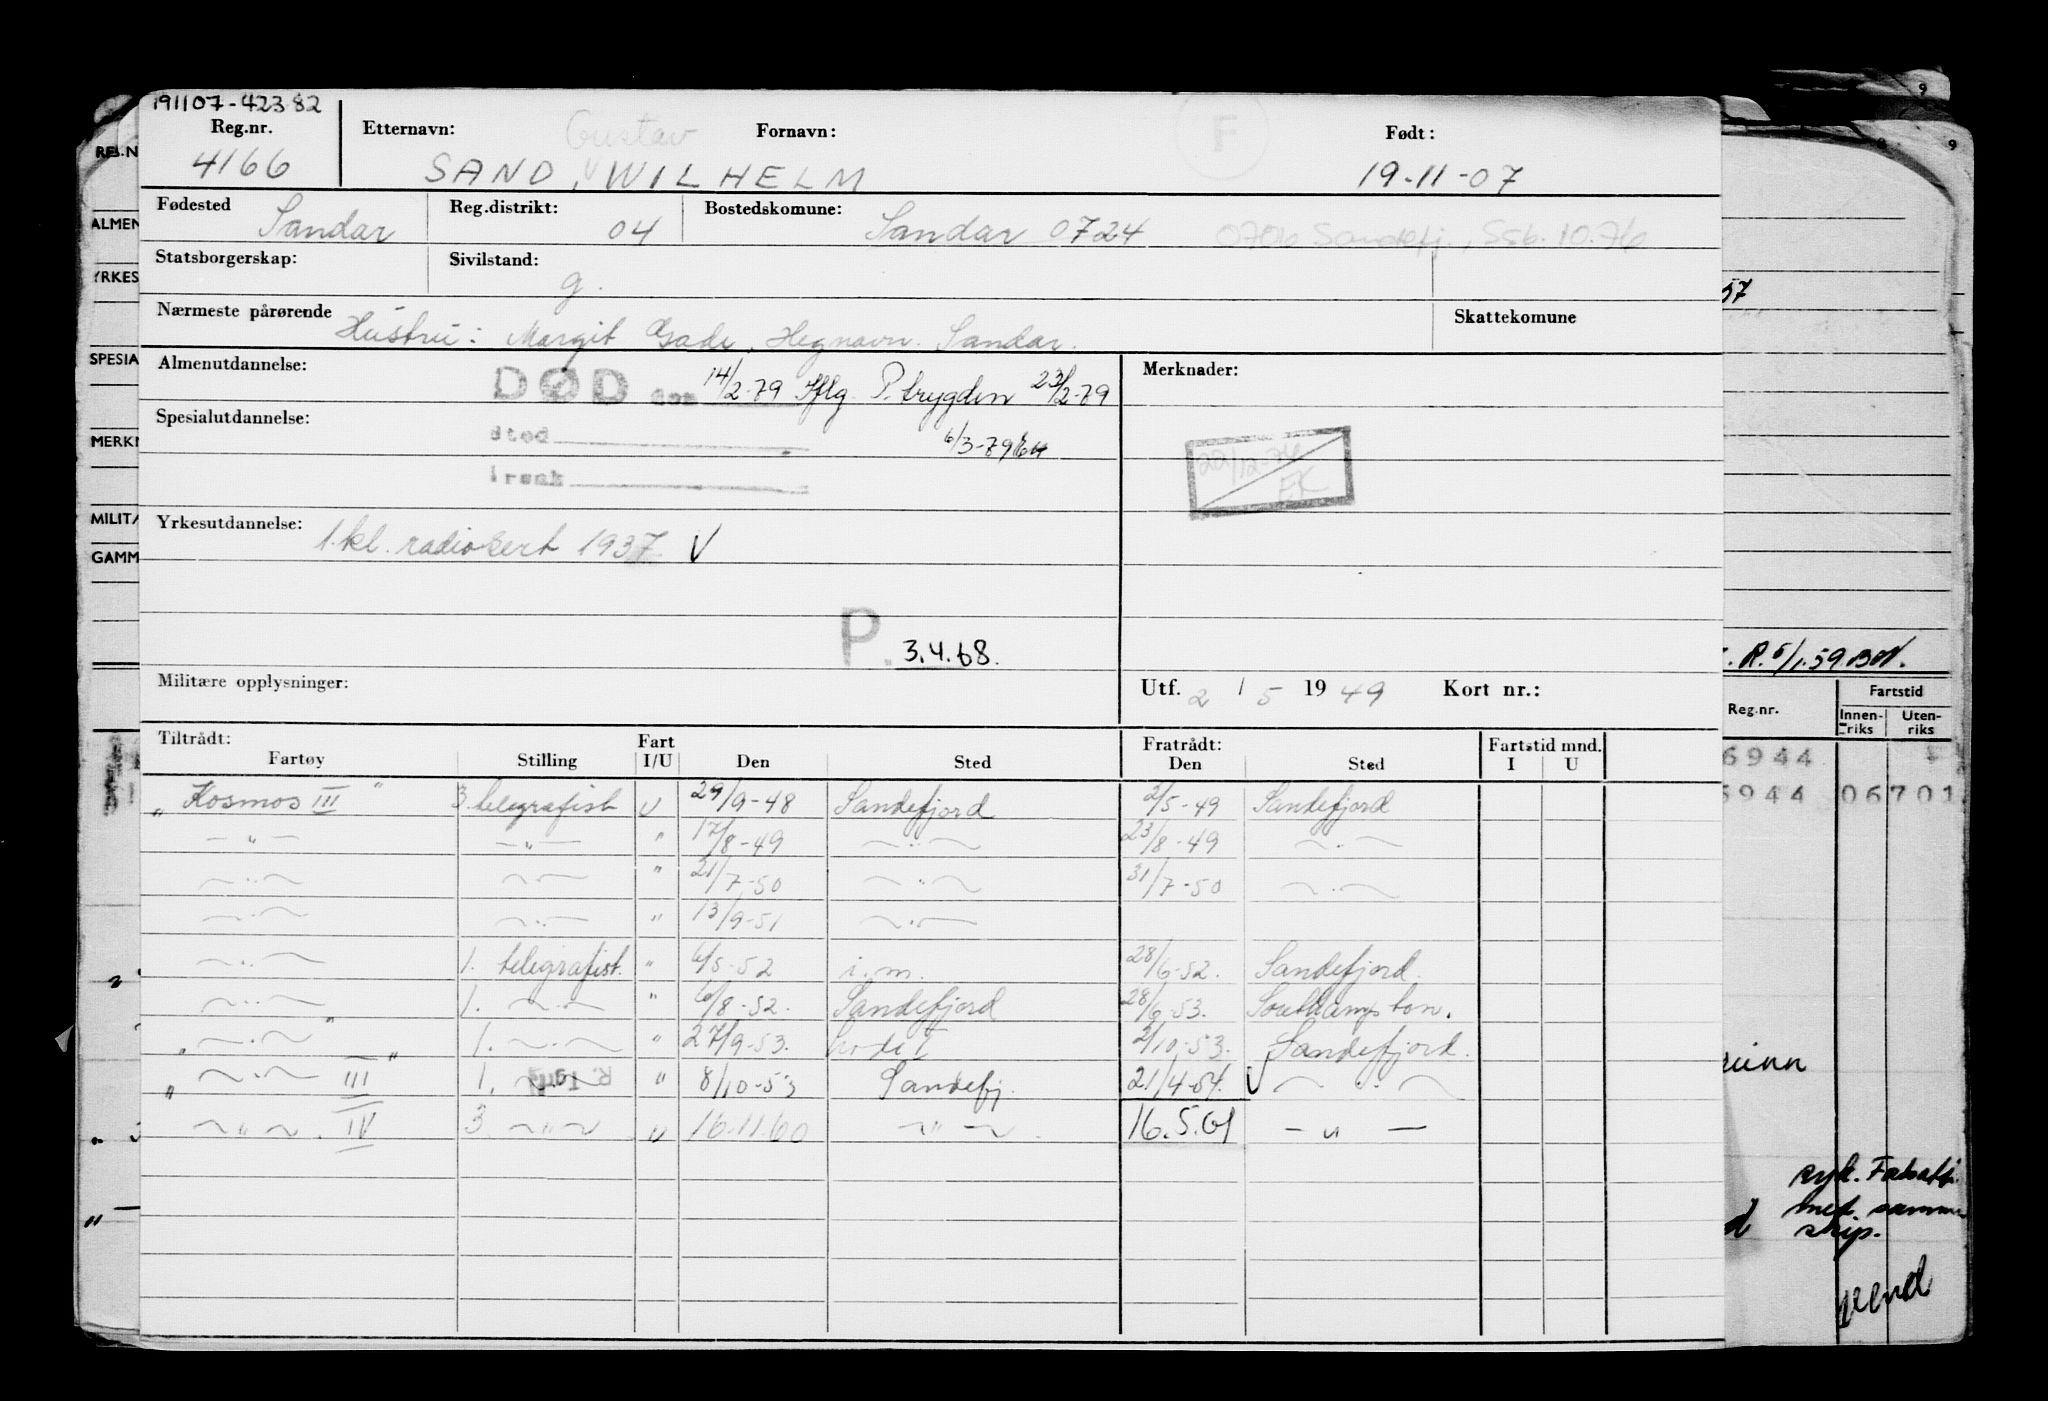 191107-42382
Reg.nr. Etternavn: Gustav Fornavn: F Født:
4166 SAND, WILHELM 19-11-07
Fødested Reg.distrikt: Bostedskomune:
Sandar 04 Sandar 0724 0706 Sandefj., SSb. 10.76
Statsborgerskap: Sivilstand:
g.
Nærmeste pårørende Skattekomune
Hustru: Margit Gade, Hegnavn. Sandar.
Almenutdannelse: Merknader:
DØD den 14/2-79 Iflg P.trygden 23/2-79
Spesialutdannelse:
Sted 6/3-79
Årsak
22/12-76
EK
Yrkesutdannelse:
1.kl. radiosert 1937 V
P. 3.4.68.
Militære opplysninger: Utf. 2 / 5 1949 Kort nr.:
Tiltrådt: Fart Fratrådt: Fartstid mnd.
Fartøy Stilling I/U Den Sted Den Sted I U
„ Kosmos III " 3. telegrafist U 29/9-48 Sandefjord 2/5-49 Sandefjord
— " — — " — " 17/8-49 — " — 23/8-49 — " —
— " — — " — " 21/7-50 — " — 31/7-50 — " —
— " — — " — " 13/9-51 — " —
— " — 1. telegrafist. " 6/5-52 i.m. 28/6-52. Sandefjord.
— " — 1. — " — " 6/8-52. Sandefjord 28/6-53. Southampton.
„ — " — " 1. — " — " 27/9-53. 2/10-53. Sandefjord.
„ — " — III " 1. — " — R. Tgrf " 8/10-53 Sandefj. 21/4-54. V — " —
— " — . IV 3 — " — U 16.11.60 — " — 16.5.61 — " —
REG.N
ALMEN
YRKES
SPESIA
MERKN
MILITÆ
GAMM
9
9
57
R. 5/1.59
Reg.nr. Fartstid
Innenriks Utenriks
6944
6944 06 701
med. samme
skip.